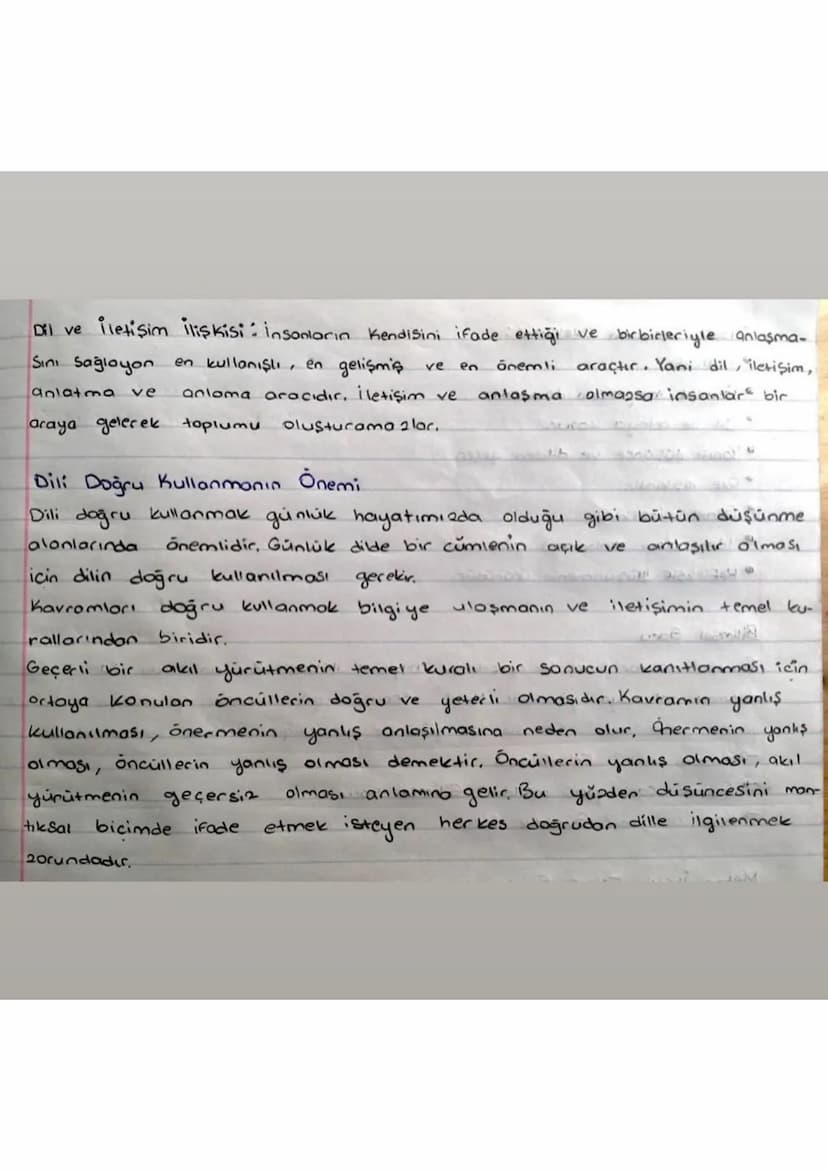 Dil ve İletişim İlişkisi: İnsanların Kendisini ifade ettiği ve birbirleriyle anlaşma-
sını sağlayan en kullanışlı, en gelişmiş ve en önemli araçtır. Yani dil, iletişim,
anlatma ve anlama aracıdır. İletişim ve anlaşma olmazsa insanlar bir
araya gelerek toplumu oluşturamazlar.
Dili Doğru Kullanmanın Önemi
Dili doğru kullanmak günlük hayatımızda olduğu gibi bütün düşünme
alanlarında önemlidir. Günlük dilde bir cümlenin açık ve anlaşılır olması
için dilin doğru kullanılması gerekir.
Kavramları doğru kullanmak bilgiye ulaşmanın ve iletişimin temel ku-
rallarından biridir.
Geçerli bir akıl yürütmenin temel kuralı bir sonucun kanıtlanması için
ortaya konulan öncüllerin doğru ve yeterli olmasıdır. Kavramın yanlış
kullanılması, önermenin yanlış anlaşılmasına neden olur. Önermenin yanlış
olması, öncüllerin yanlış olması demektir. Öncüllerin yanlış olması, akıl
yürütmenin geçersiz olması anlamına gelir. Bu yüzden düşüncesini man-
tıksal biçimde ifade etmek isteyen herkes doğrudan dille ilgilenmek
zorundadır.